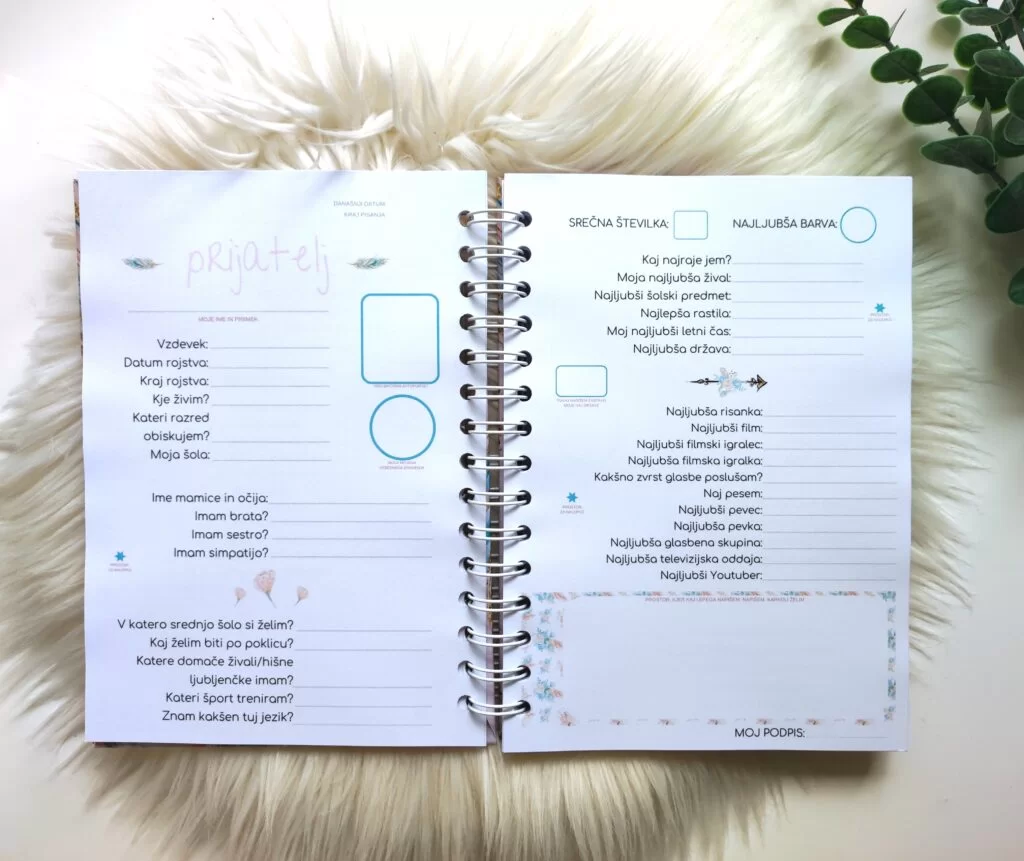 DANAŠNJI DATUM
KRAJ PISANJA
prijatelj
MOJE IME IN PRIIMEK
Vzdevek:
Datum rojstva:
Kraj rojstva:
Kje živim?
Kateri razred
obiskujem?
Moja šola:
Ime mamice in očija:
Imam brata?
Imam sestro?
Imam simpatijo?
PROSTOR
ZA NALEPKO
V katero srednjo šolo si želim?
Kaj želim biti po poklicu?
Katere domače živali/hišne
ljubljenčke imam?
Kateri šport treniram?
Znam kakšen tuj jezik?
SREČNA ŠTEVILKA:
NAJLJUBŠA BARVA:
Kaj najraje jem?
Moja najljubša žival:
Najljubši šolski predmet:
Najlepša rastlia:
Moj najljubši letni čas:
Najljubša država:
PROSTOR
ZA NALEPKO
Najljubša risanka:
Najljubši film:
Najljubši filmski igralec:
Najljubša filmska igralka:
Kakšno zvrst glasbe poslušam?
Naj pesem:
Najljubši pevec:
Najljubša pevka:
Najljubša glasbena skupina:
Najljubša televizijska oddaja:
Najljubši Youtuber:
PROSTOR
ZA NALEPKO
MOJ PODPIS: